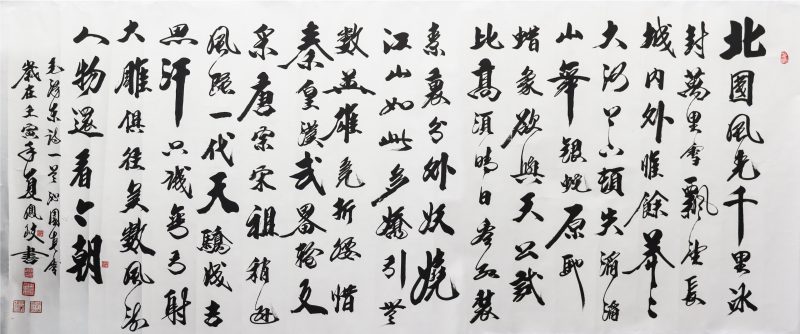 北國風光千里冰
封萬里雪飄望長
城內外惟餘莽〻
大河上下頓失滔滔
山舞銀蛇原馳
蜡象欲與天公試
比高須晴日看紅裝
素裹分外妖嬈
江山如此多嬌引無
數英雄競折腰惜
秦皇漢武略輸文
采唐宗宋祖稍遜
風騷一代天驕成吉
思汗只識彎弓射
大雕俱往矣數風流
人物還看今朝
毛澤東詞一首沁園春雪
歲在壬寅年夏書